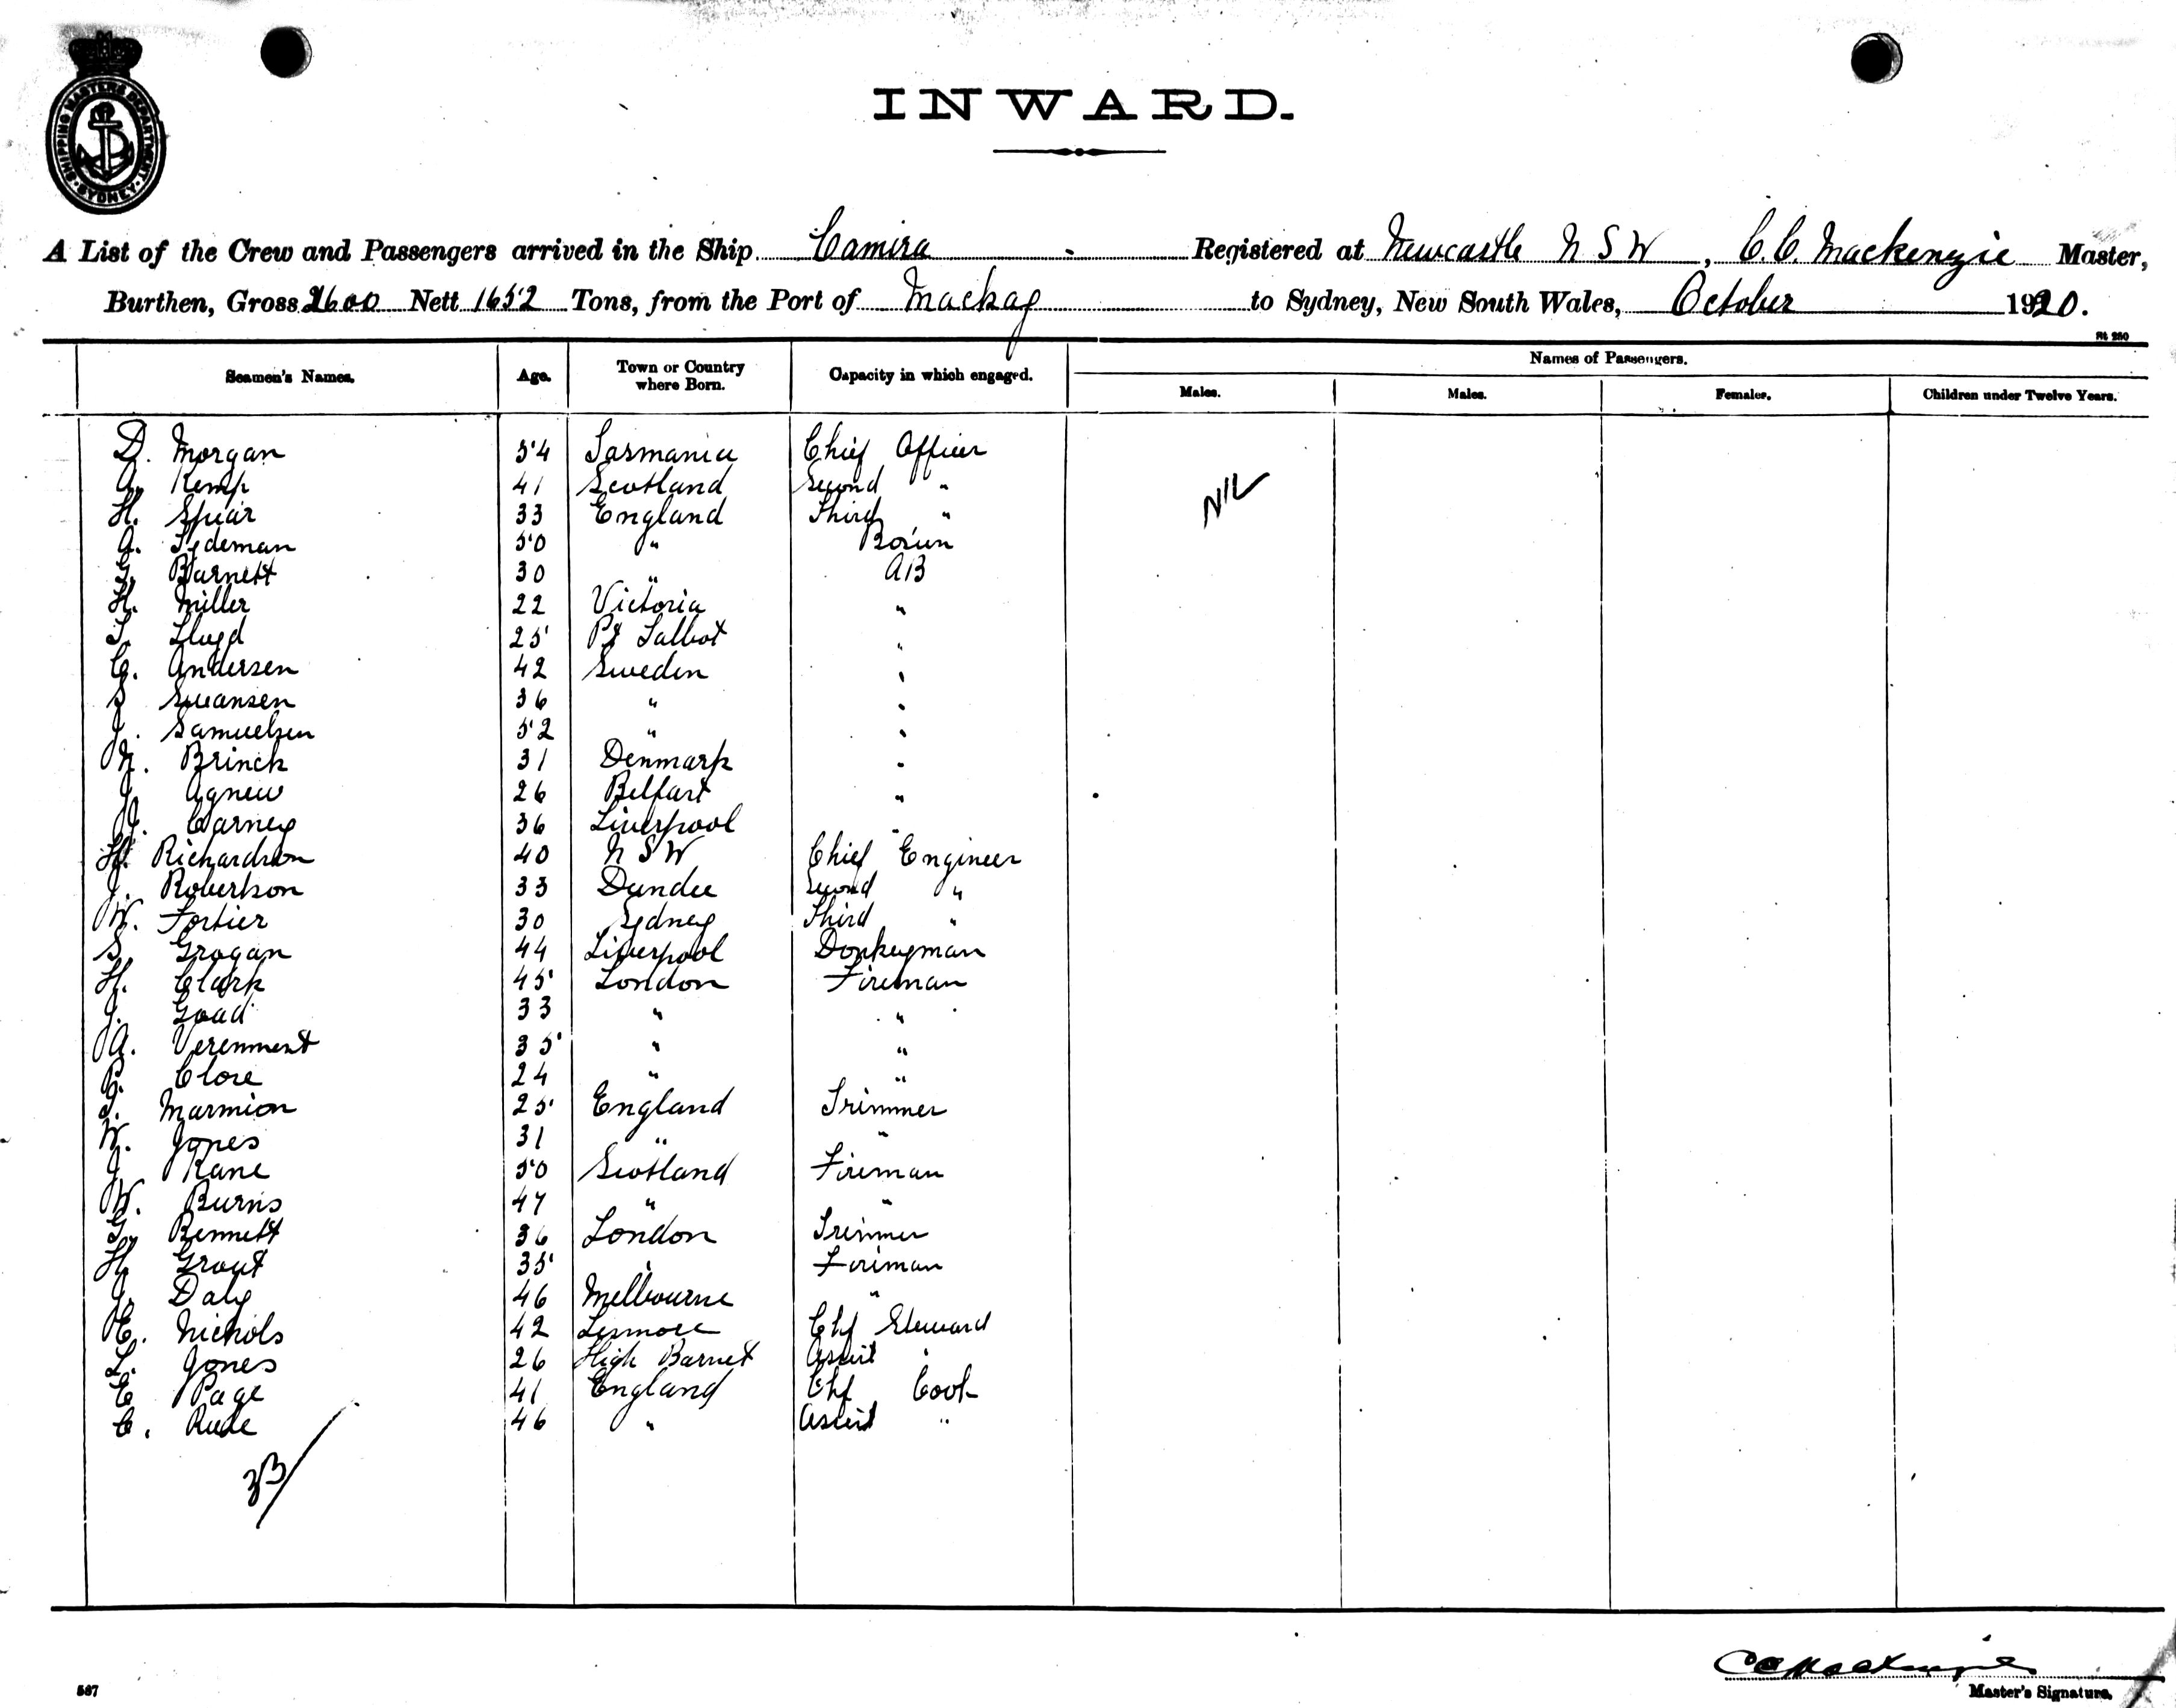 SHIPPING MASTERS DEPARTMENT SYDNEY
INWARD.
A List of the Crew and Passengers arrived in the Ship Camira Registered at Newcastle N S W, C.C. Mackenzie Master,
Burthen, Gross 2600 Nett 1652 Tons, from the Port of Mackay to Sydney, New South Wales, October 1920.
St 280
Seamen's Names. Age. Town or Country where Born. Capacity in which engaged. Names of Passengers.
Males. Males. Females. Children under Twelve Years.
D. Morgan 54 Tasmania Chief Officer
A. Kemp 41 Scotland Second " NIL
H. Spear 33 England Third "
A. Sydeman 50 " Bosun
G. Barnett 30 " AB
H. Miller 22 Victoria "
T. Lloyd 25 Pt Talbot "
C. Andersen 42 Sweden "
S Swansen 36 " "
J. Samuelsen 52 " "
N. Brinck 31 Denmark "
J. Agnew 26 Belfast "
J. Carney 36 Liverpool "
H. Richardson 40 N S W Chief Engineer
J. Robertson 33 Dundee Second "
W. Fortier 30 Sydney Third "
S. Grogan 44 Liverpool Donkeyman
H. Clark 45 London Fireman
J. Goad 33 " "
A. Verenment 35 " "
C. Clore 24 " "
T. Marmion 25 England Trimmer
W. Jones 31 " "
J Kane 50 Scotland Fireman
W. Burns 47 " "
G. Bennett 36 London Trimmer
H Grout 35 " Fireman
J. Daly 46 Melbourne "
E. Nichols 42 Lismore Chf Steward
L. Jones 26 High Barnet Assist "
E Page 41 England Chf Cook
C. Rude 46 " Assist "
33/
CC Mackenzie
Master's Signature.
587